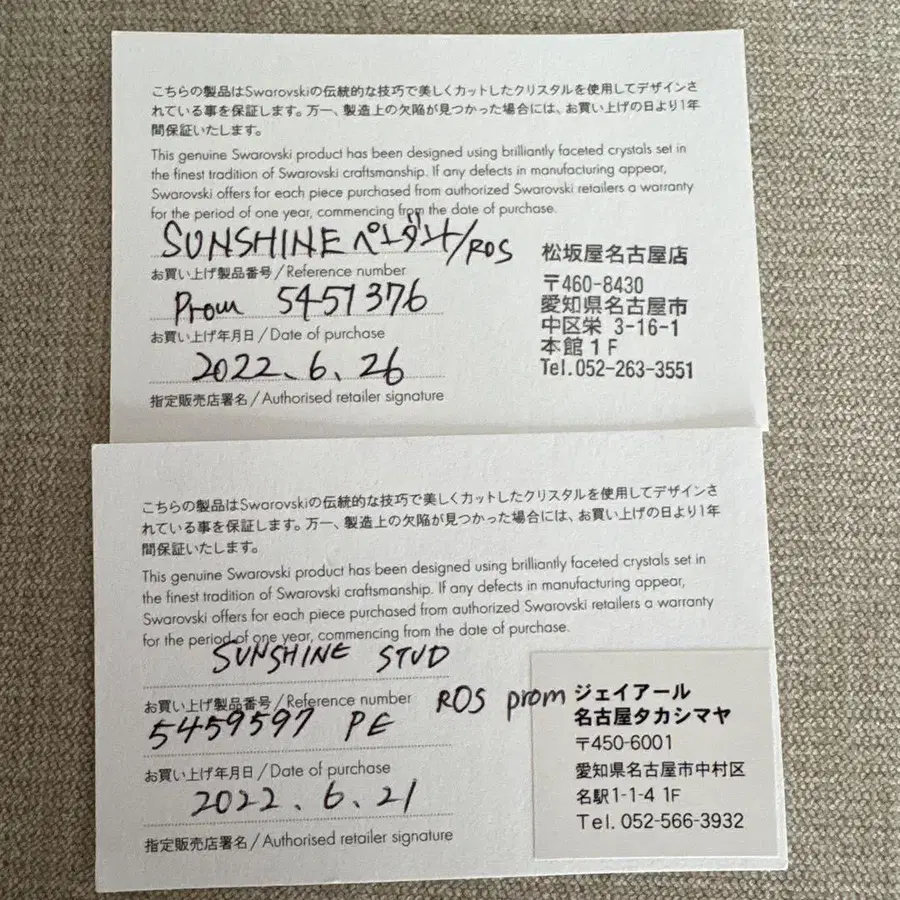 こちらの製品はSwarovskiの伝統的な技巧で美しくカットしたクリスタルを使用してデザインさ
れている事を保証します。万一、製造上の欠陥が見つかった場合には、お買い上げの日より1年
間保証いたします。
This genuine Swarovski product has been designed using brilliantly faceted crystals set in
the finest tradition of Swarovski craftsmanship. If any defects in manufacturing appear,
Swarovski offers for each piece purchased from authorized Swarovski retailers a warranty
for the period of one year, commencing from the date of purchase.
SUNSHINE ペンダント/ROS
お買い上げ製品番号/Reference number
Prom 5451376
お買い上げ年月日/Date of purchase
2022、6、26
指定販売店署名/Authorised retailer signature
松坂屋名古屋店
〒460-8430
愛知県名古屋市
中区栄 3-16-1
本館1F
Tel.052-263-3551
こちらの製品はSwarovskiの伝統的な技巧で美しくカットしたクリスタルを使用してデザインさ
れている事を保証します。万一、製造上の欠陥が見つかった場合には、お買い上げの日より1年
間保証いたします。
This genuine Swarovski product has been designed using brilliantly faceted crystals set in
the finest tradition of Swarovski craftsmanship. If any defects in manufacturing appear,
Swarovski offers for each piece purchased from authorized Swarovski retailers a warranty
for the period of one year, commencing from the date of purchase.
SUNSHINE STUD
お買い上げ製品番号/Reference number
ROS prom
5459597 PE
お買い上げ年月日/Date of purchase
2022、6、21
指定販売店署名/Authorised retailer signature
ジェイアール
名古屋タカシマヤ
〒450-6001
愛知県名古屋市中村区
名駅1-1-4 1F
Tel. 052-566-3932